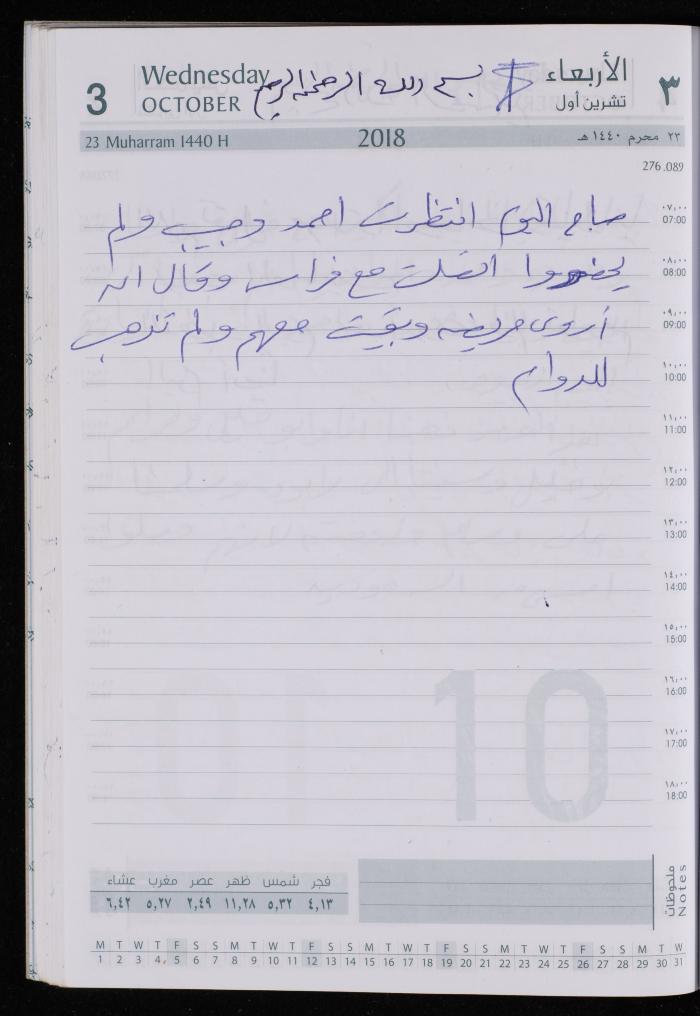 3
Wednesday
OCTOBER
بسم الله الرحمن الرحيم
الأربعاء
تشرين أول
٣
23 Muharram 1440 H
2018
٢٣ محرم ١٤٤٠ هـ
276.089
صباح اليوم انتظرت احمد وحبيب ولم
يحضروا اتصلت مع فراس وقال ان
أروى مريضه وبقيت معهم ولم تذهب
للدوام
٠٧,٠٠
07:00
٠٨,٠٠
08:00
٠٩,٠٠
09:00
١٠,٠٠
10:00
١١,٠٠
11:00
١٢,٠٠
12:00
١٣,٠٠
13:00
١٤,٠٠
14:00
١٥,٠٠
15:00
١٦,٠٠
16:00
١٧,٠٠
17:00
١٨,٠٠
18:00
10
فجر شمس ظهر عصر مغرب عشاء
٤,١٣ ٥,٣٢ ١١,٢٨ ٢,٤٩ ٥,٢٧ ٦,٤٢
ملحوظات
Notes
M T W T F S S M T W T F S S M T W T F S S M T W T F S S M T W
1 2 3 4 5 6 7 8 9 10 11 12 13 14 15 16 17 18 19 20 21 22 23 24 25 26 27 28 29 30 31